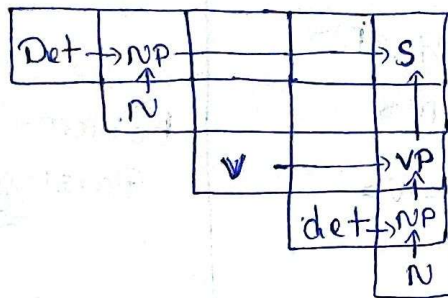 Det → NP → S
N
V → VP
det → NP
N